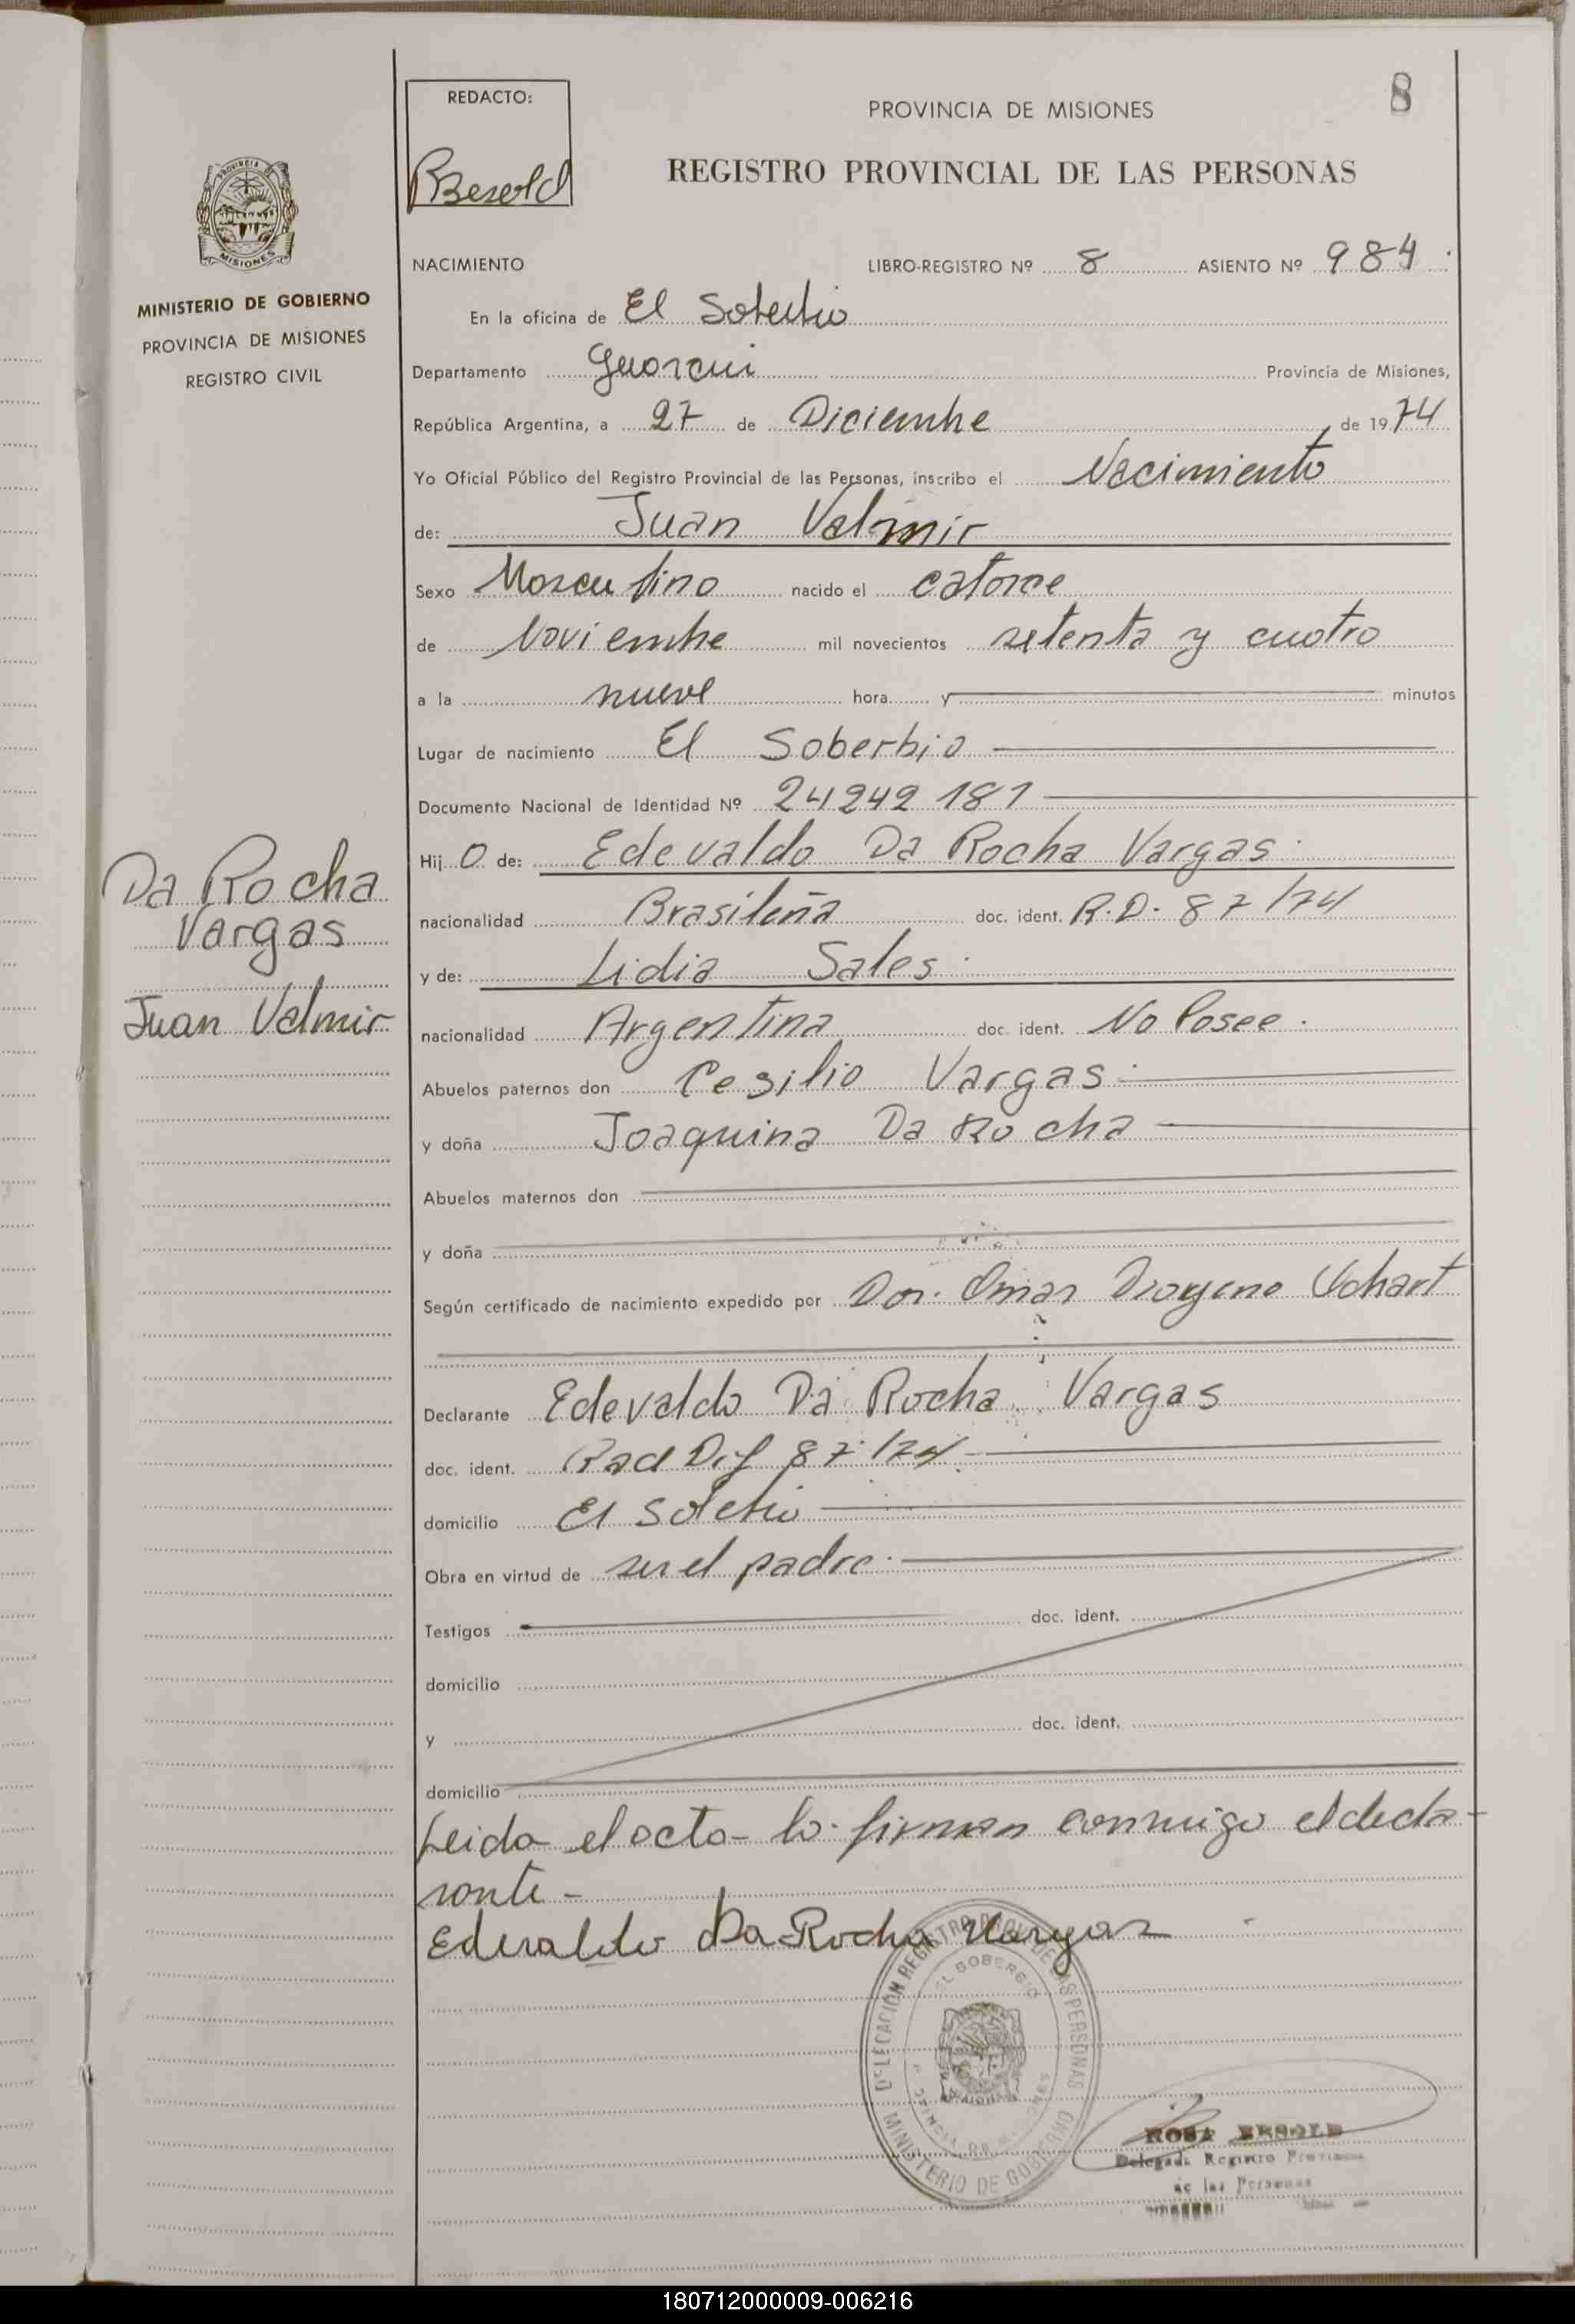 8
REDACTO:
Besold
PROVINCIA DE MISIONES
REGISTRO PROVINCIAL DE LAS PERSONAS
MISIONES
MINISTERIO DE GOBIERNO
PROVINCIA DE MISIONES
REGISTRO CIVIL
NACIMIENTO LIBRO-REGISTRO Nº 8 ASIENTO Nº 984
En la oficina de El Soberbio
Departamento Guaraní Provincia de Misiones,
República Argentina, a 27 de Diciembre de 1974
Yo Oficial Público del Registro Provincial de las Personas, inscribo el Nacimiento
de: Juan Valmir
Sexo Masculino nacido el catorce
de Noviembre mil novecientos setenta y cuatro
a la nueve hora y minutos
Lugar de nacimiento El Soberbio
Documento Nacional de Identidad Nº 24242 181
Hij o de: Edevaldo Da Rocha Vargas
nacionalidad Brasileña doc. ident. R.D. 87/74
y de: Lidia Sales
nacionalidad Argentina doc. ident. No Posee.
Abuelos paternos don Cesilio Vargas
y doña Joaquina Da Rocha
Abuelos maternos don
y doña
Según certificado de nacimiento expedido por Omar
Declarante Edevaldo Da Rocha Vargas
doc. ident. Rad Dif 87/74
domicilio El Soberbio
Obra en virtud de ser el padre
Testigos doc. ident.
domicilio
y doc. ident.
domicilio
Leida el acta lo firman conmigo el decla-
rante -
Edevaldo Da Rocha Vargas
Da Rocha
Vargas
Juan Valmir
DELEGACION REGISTRO PROV. DE LAS PERSONAS
EL SOBERBIO
PROVINCIA DE MISIONES
MINISTERIO DE GOBIERNO
ROSA BESOLD
Delegada Registro Provincial
de las Personas
180712000009-006216